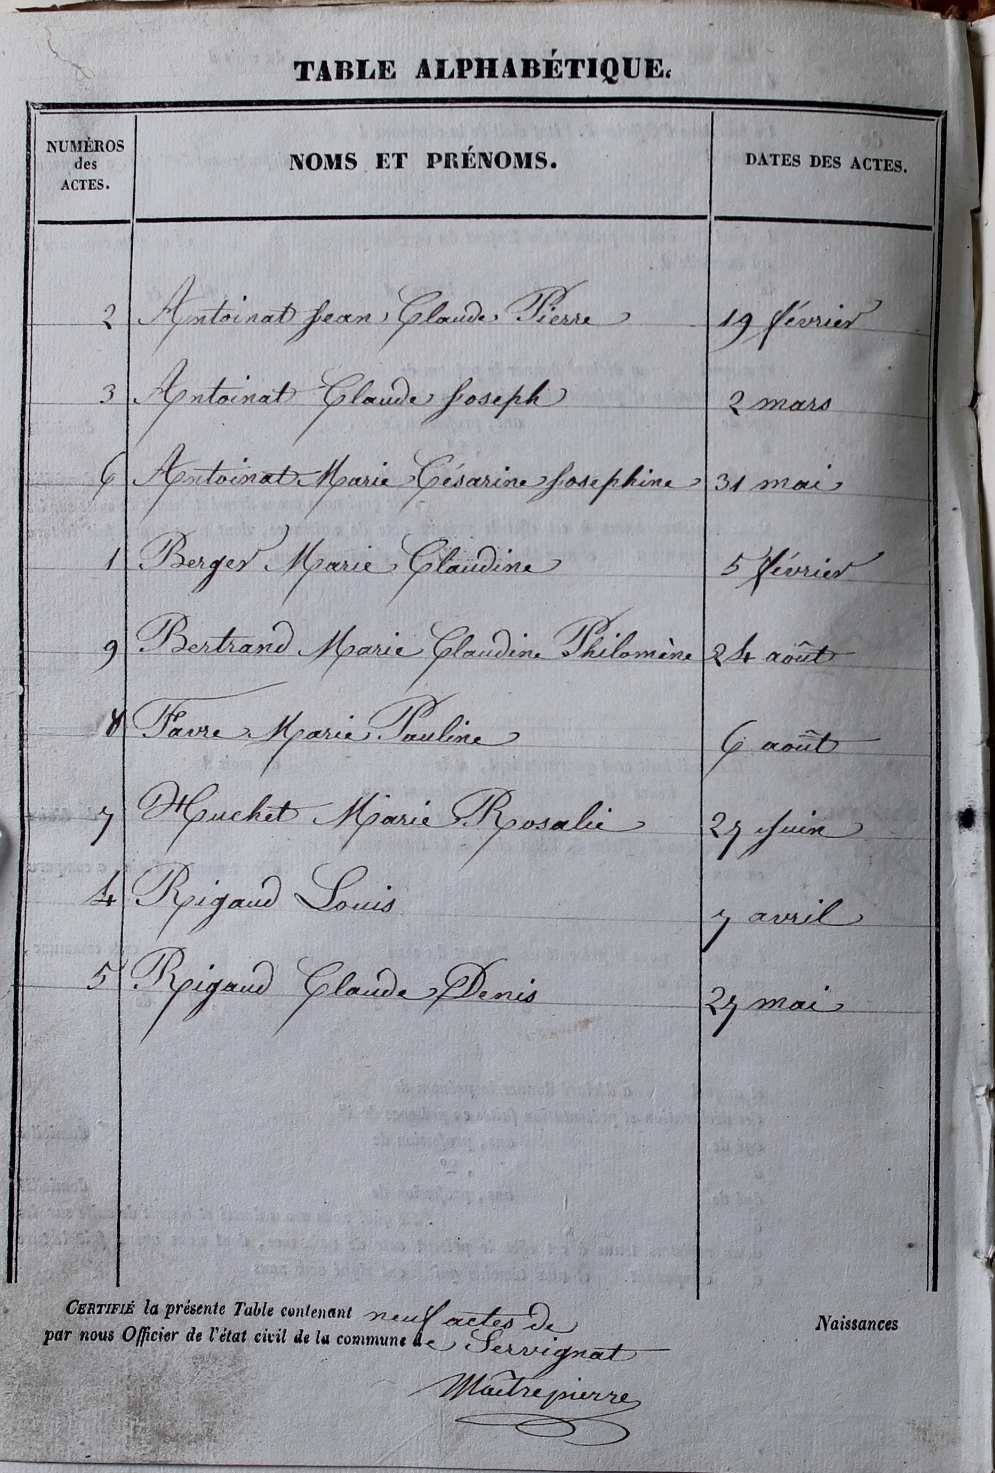 TABLE ALPHABÉTIQUE.
NUMÉROS des ACTES. NOMS ET PRÉNOMS. DATES DES ACTES.
2 Antoinat Jean Claude Pierre 19 février
3 Antoinat Claude Joseph 2 mars
6 Antoinat Marie Césarine Josephine 31 mai
1 Berger Marie Claudine 5 février
9 Bertrand Marie Claudine Philomène 24 août
8 Favre Marie Pauline 6 août
7 Huchet Marie Rosalie 27 Juin
4 Rigaud Louis 7 avril
5 Rigaud Claude Denis 27 mai
CERTIFIÉ la présente Table contenant neuf actes de Naissances
par nous Officier de l'état civil de la commune de Servignat
Maîtrepierre